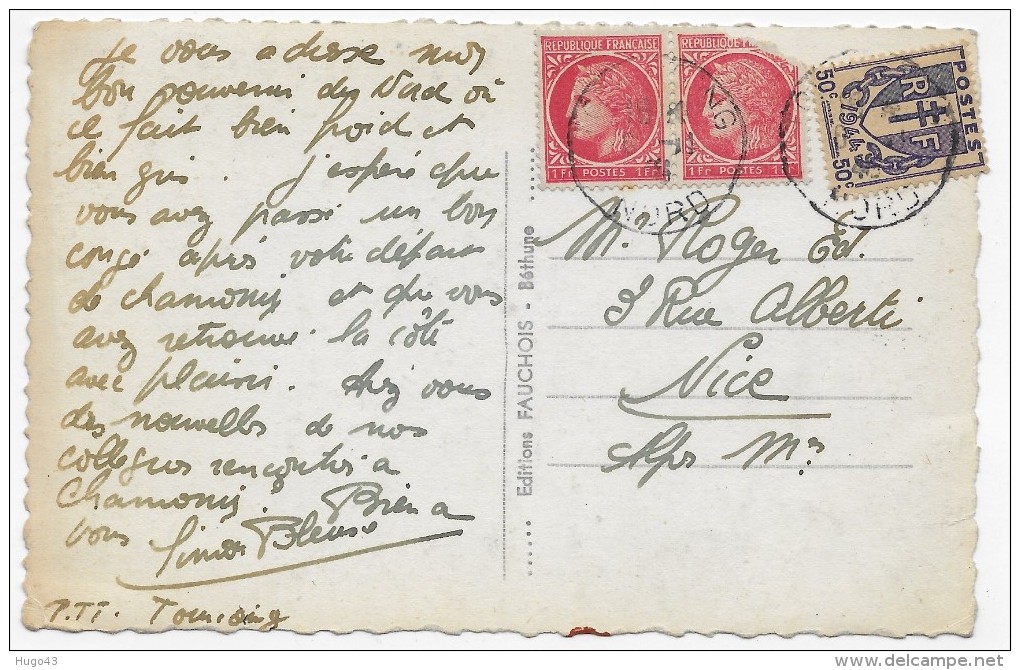 Je vous adresse mon
bon souvenir du Nord où
il fait bien froid et
bien gris. j'espère que
vous avez passé un bon
congé après votre départ
de chamonix et que vous
avez retrouvé la côte
avec plaisir. Avez vous
des nouvelles de nos
collègues rencontrés à
Chamonix. Bien à
vous Simon Bleuse
P.TT. Tourcoing
Editions FAUCHOIS - Béthune
REPUBLIQUE FRANÇAISE
1Fr POSTES 1Fr
REPUBLIQUE FRANÇAISE
1Fr POSTES 1Fr
NG
NORD
POSTES
RF
50c 1944 50c
NORD
Mr Roger Ed.
3 Rue Alberti
Nice
Alpes Mmes
Hugo43
delcampe.net